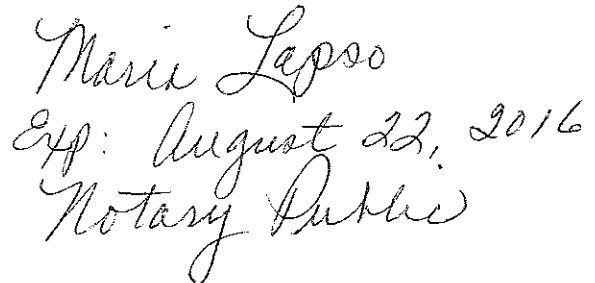 Maria Lapso
Exp: August 22, 2016
Notary Public